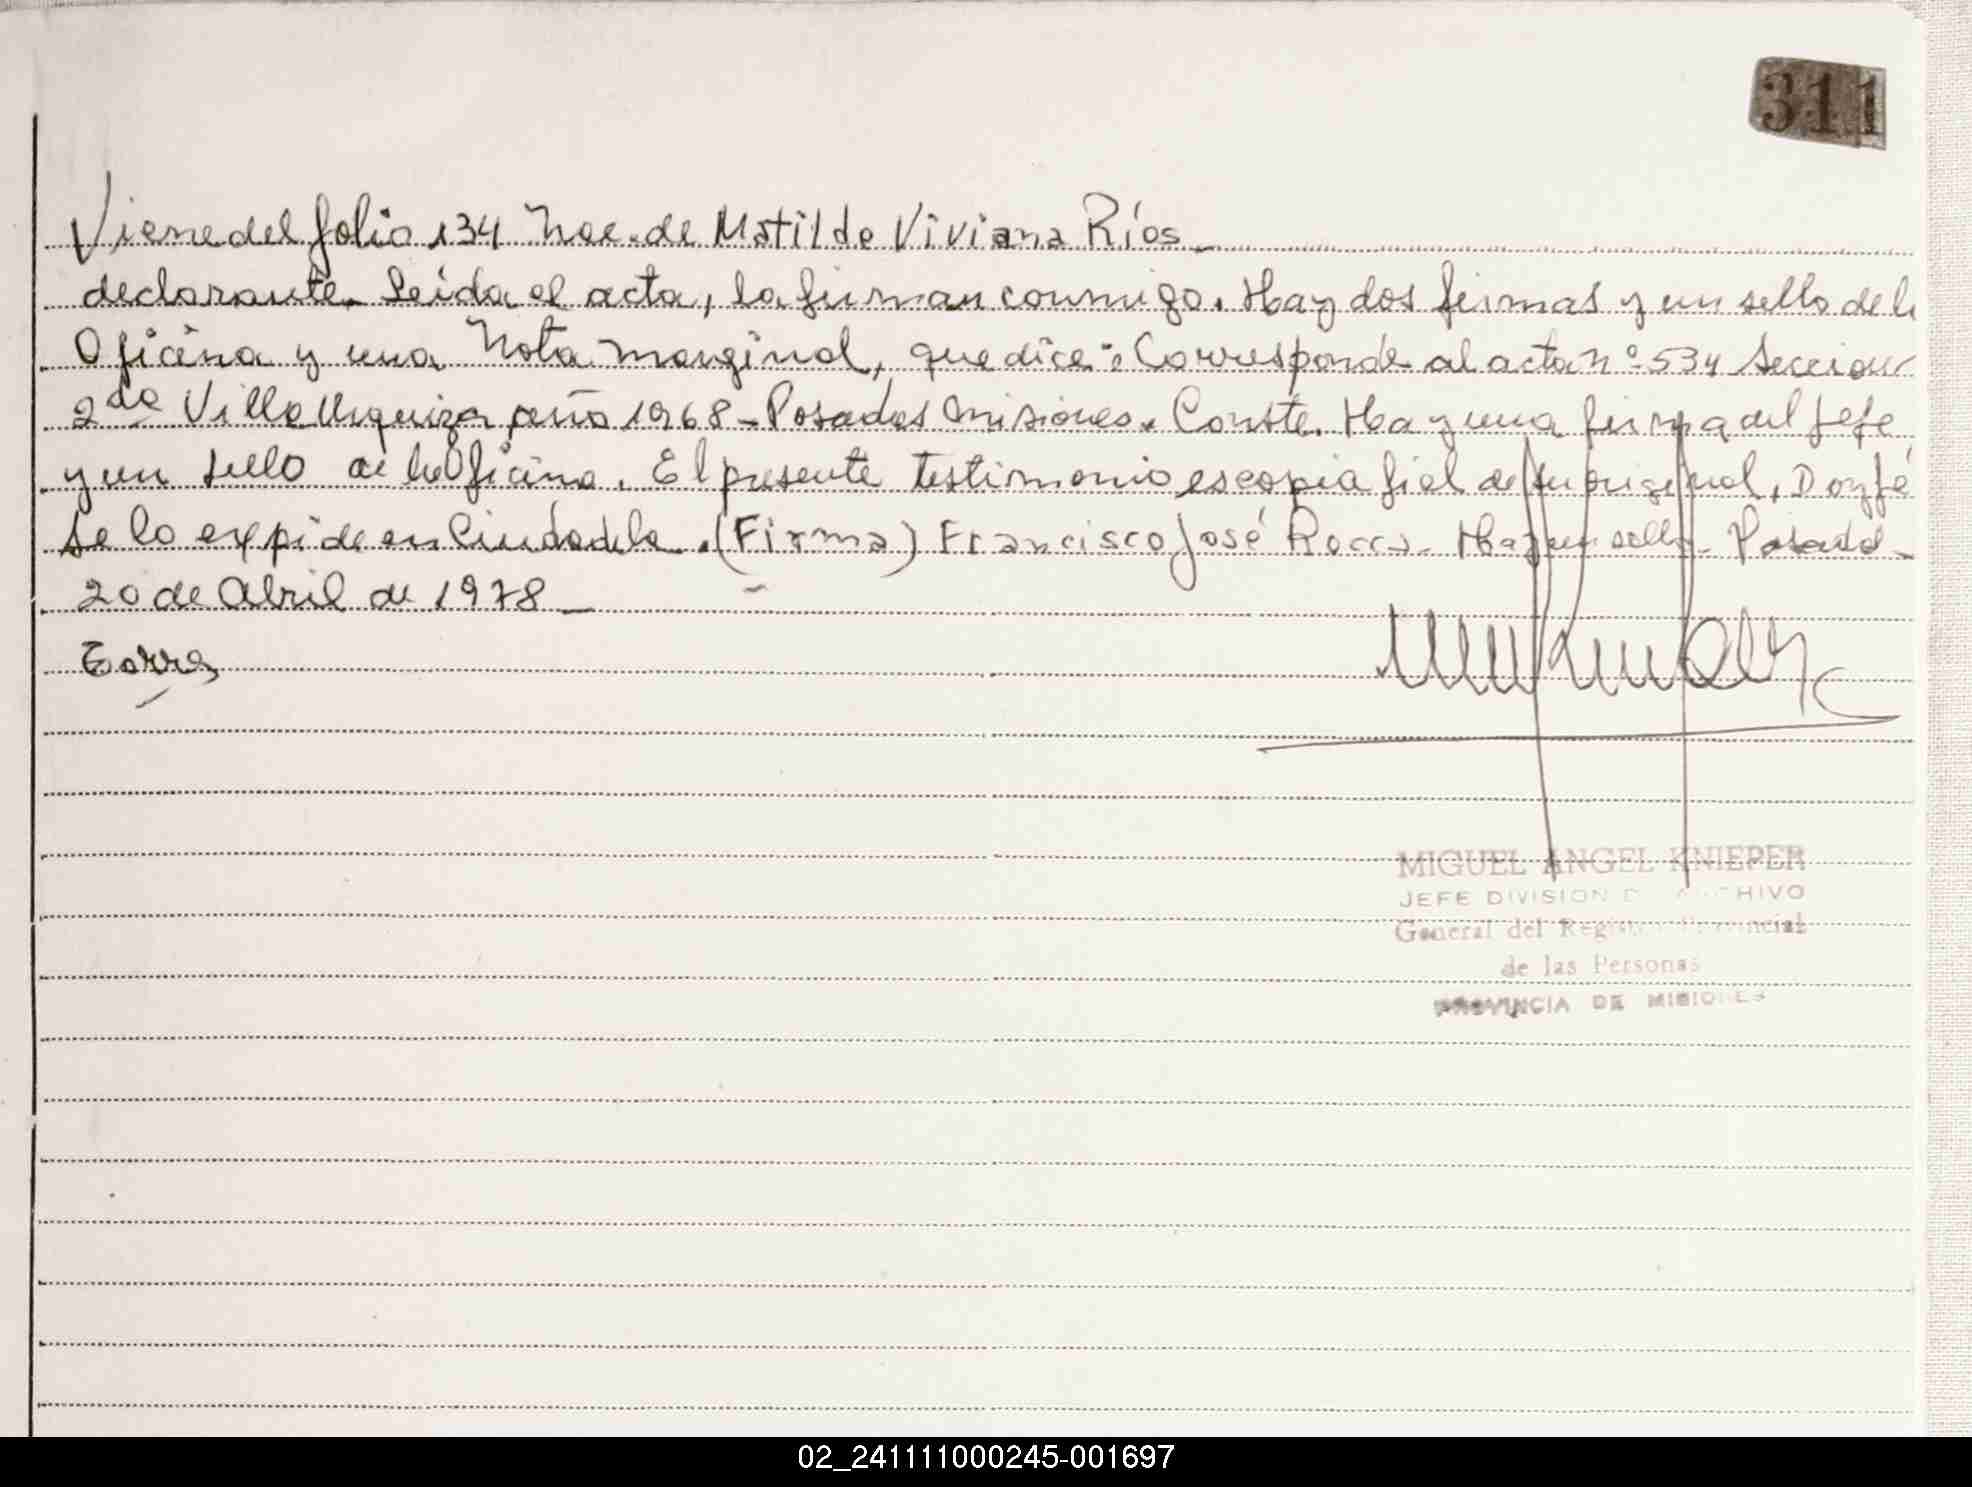 311
Viene del folio 134 Nac. de Matilde Viviana Ríos _
declarante. Leída el acta, la firman conmigo. Hay dos firmas y un sello de l
Oficina y una Nota marginal, que dice: Corresponde al acta nº 534 Seccion
2da Villa Urquiza año 1968 - Posadas Misiones. Conste. Hay una firma del Jefe
y un sello de la Oficina. El presente testimonio es copia fiel de su original, Doy fé
se lo expide en Ciudadela. (Firma) Francisco José Rocca. Hay un sello - Posadas -
20 de Abril de 1978 _
Torres
MIGUEL ANGEL KNIEPER
JEFE DIVISION D ARCHIVO
General del Registro Provincial
de las Personas
PROVINCIA DE MISIONES
02_241111000245-001697